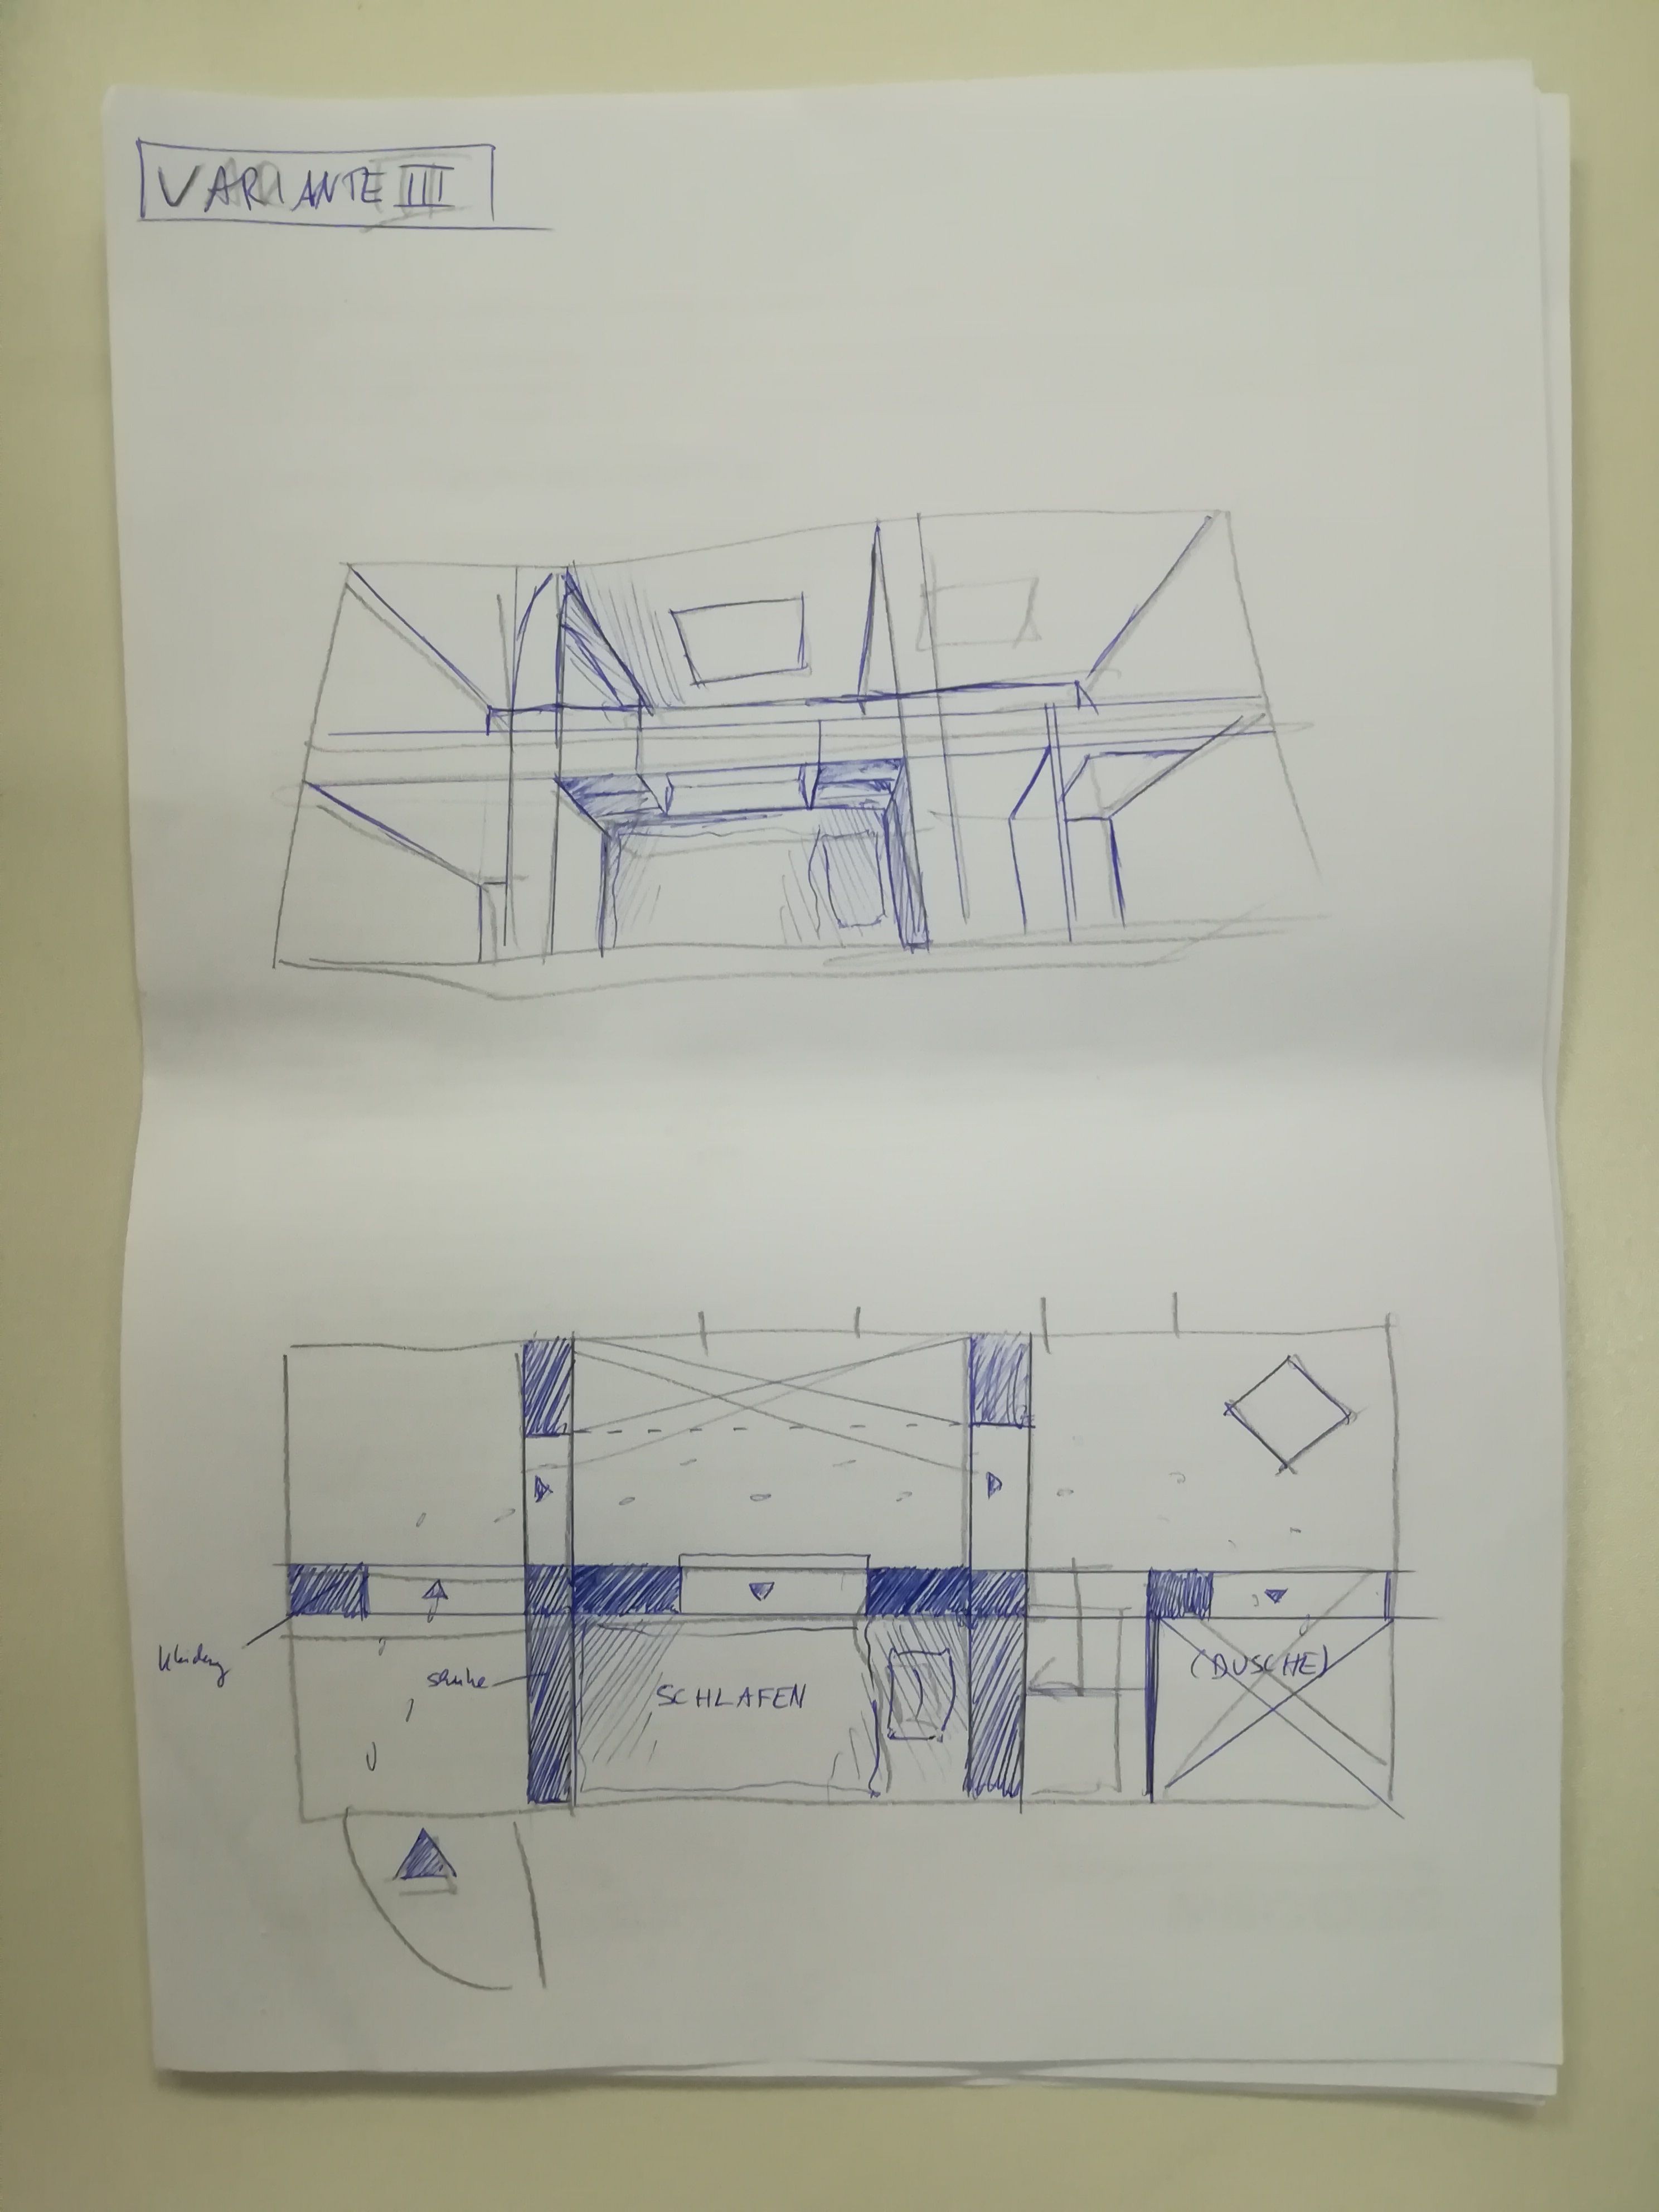 VARIANTE III
Kleidung
schuhe
SCHLAFEN
(DUSCHE)